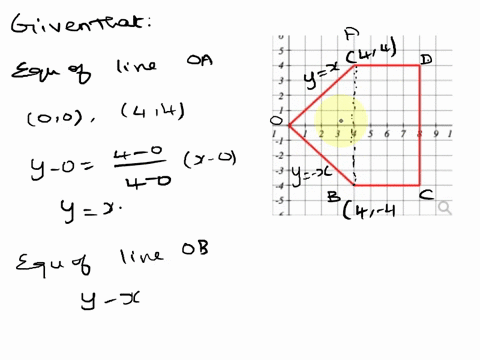 Given that:
Equ of line OA
(0,0), (4,4)
y-0 = 4-0/4-0 (x-0)
y = x.
Equ of line OB
y - x
A
(4,4)
D
y=x
O
y=-x
B
C
(4,-4
6
5
4
3
2
1
1 1 2 3 4 5 6 7 8 9 1
-1
-2
-3
-4
-5